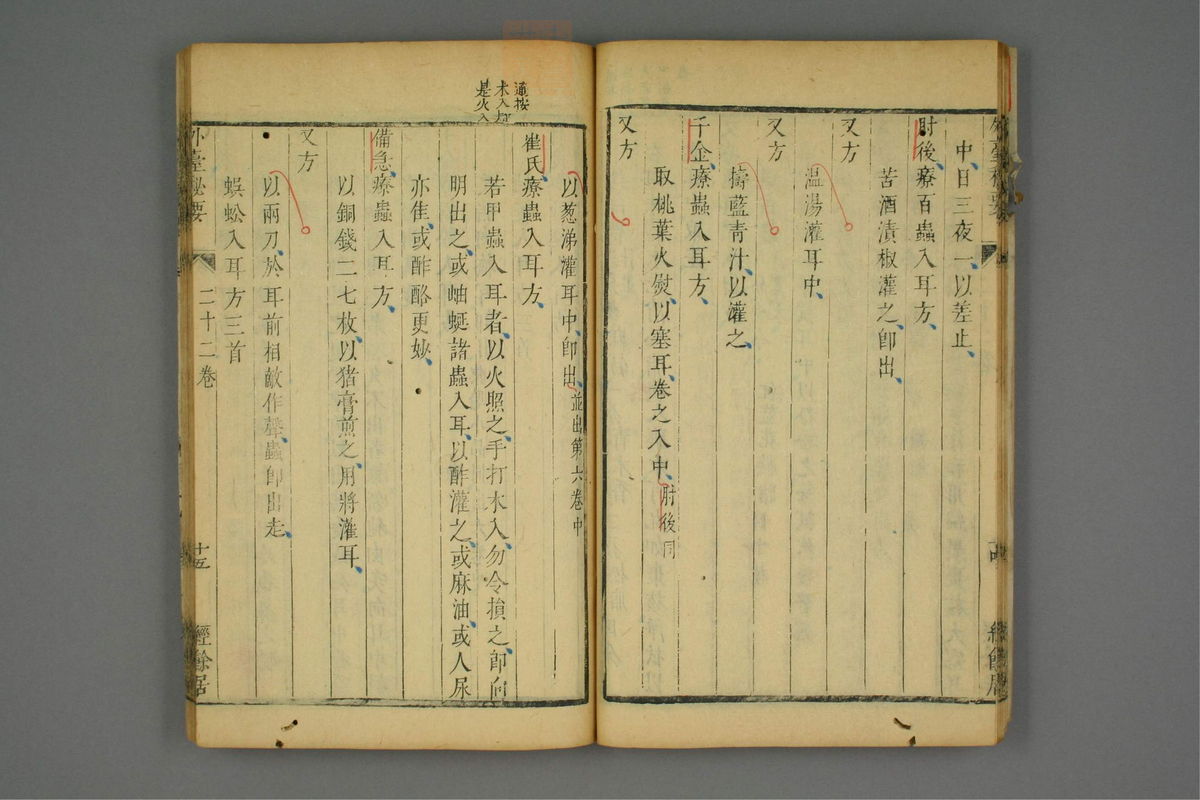 中日三夜一以差止
肘後療百蟲入耳方
苦酒漬椒灌之卽出
又方
温湯灌耳中
又方
擣藍青汁以灌之
千金療蟲入耳方
取桃葉火熨以塞耳卷之入中肘後同
又方
以葱涕灌耳中卽出並出第六卷中
崔氏療蟲入耳方
若甲蟲入耳者以火照之手打木入勿令損之卽向
明出之或蚰蜒諸蟲入耳以酢灌之或麻油或人尿
亦佳或酢酪更妙
備急療蟲入耳方
以銅錢二七枚以猪膏煎之用將灌耳
又方
以兩刀於耳前相敵作聲蟲卽出走
蜈蚣入耳方三首
外臺秘要
二十二卷
十五
經餘居
木入
是火入